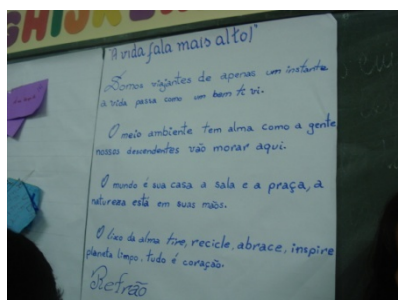 GHIJK
"A vida fala mais alto!"
Somos viajantes de apenas um instante
a vida passa como um bem te vi.
O meio ambiente tem alma como a gente
nossos descendentes vão morar aqui.
O mundo é sua casa a sala e a praça, a
natureza está em suas mãos.
O lixo da alma tire, recicle, abrace, inspire
planeta limpo, tudo é coração.
Refrão